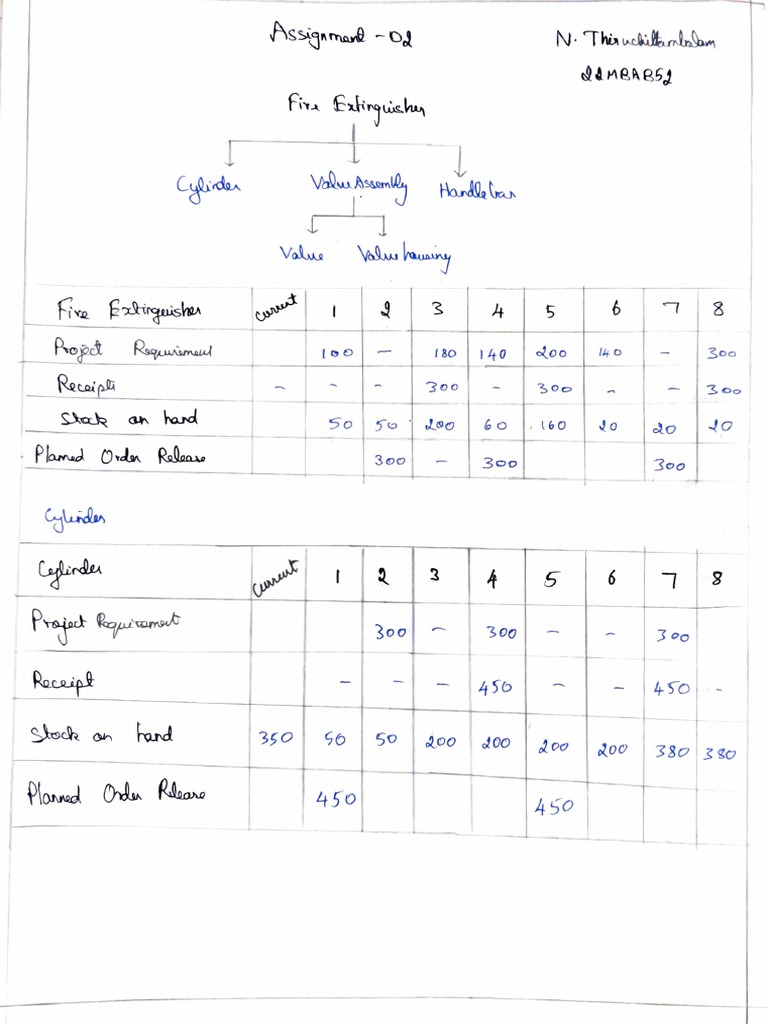 Assignment - 02
N. Thiruchittambalam
22MBAB52
Fire Extinguisher
Cylinder Value Assembly Handle bar
Value Value housing
Fire Extinguisher current 1 2 3 4 5 6 7 8
Project Requirement 100 - 180 140 200 140 - 300
Receipts - - - 300 - 300 - - 300
Stock on hand 50 50 200 60 160 20 20 20
Planned Order Release 300 - 300 300
Cylinder
Cylinder current 1 2 3 4 5 6 7 8
Project Requirement 300 - 300 - - 300
Receipt - - - 450 - - 450 -
Stock on hand 350 50 50 200 200 200 200 380 380
Planned Order Release 450 450